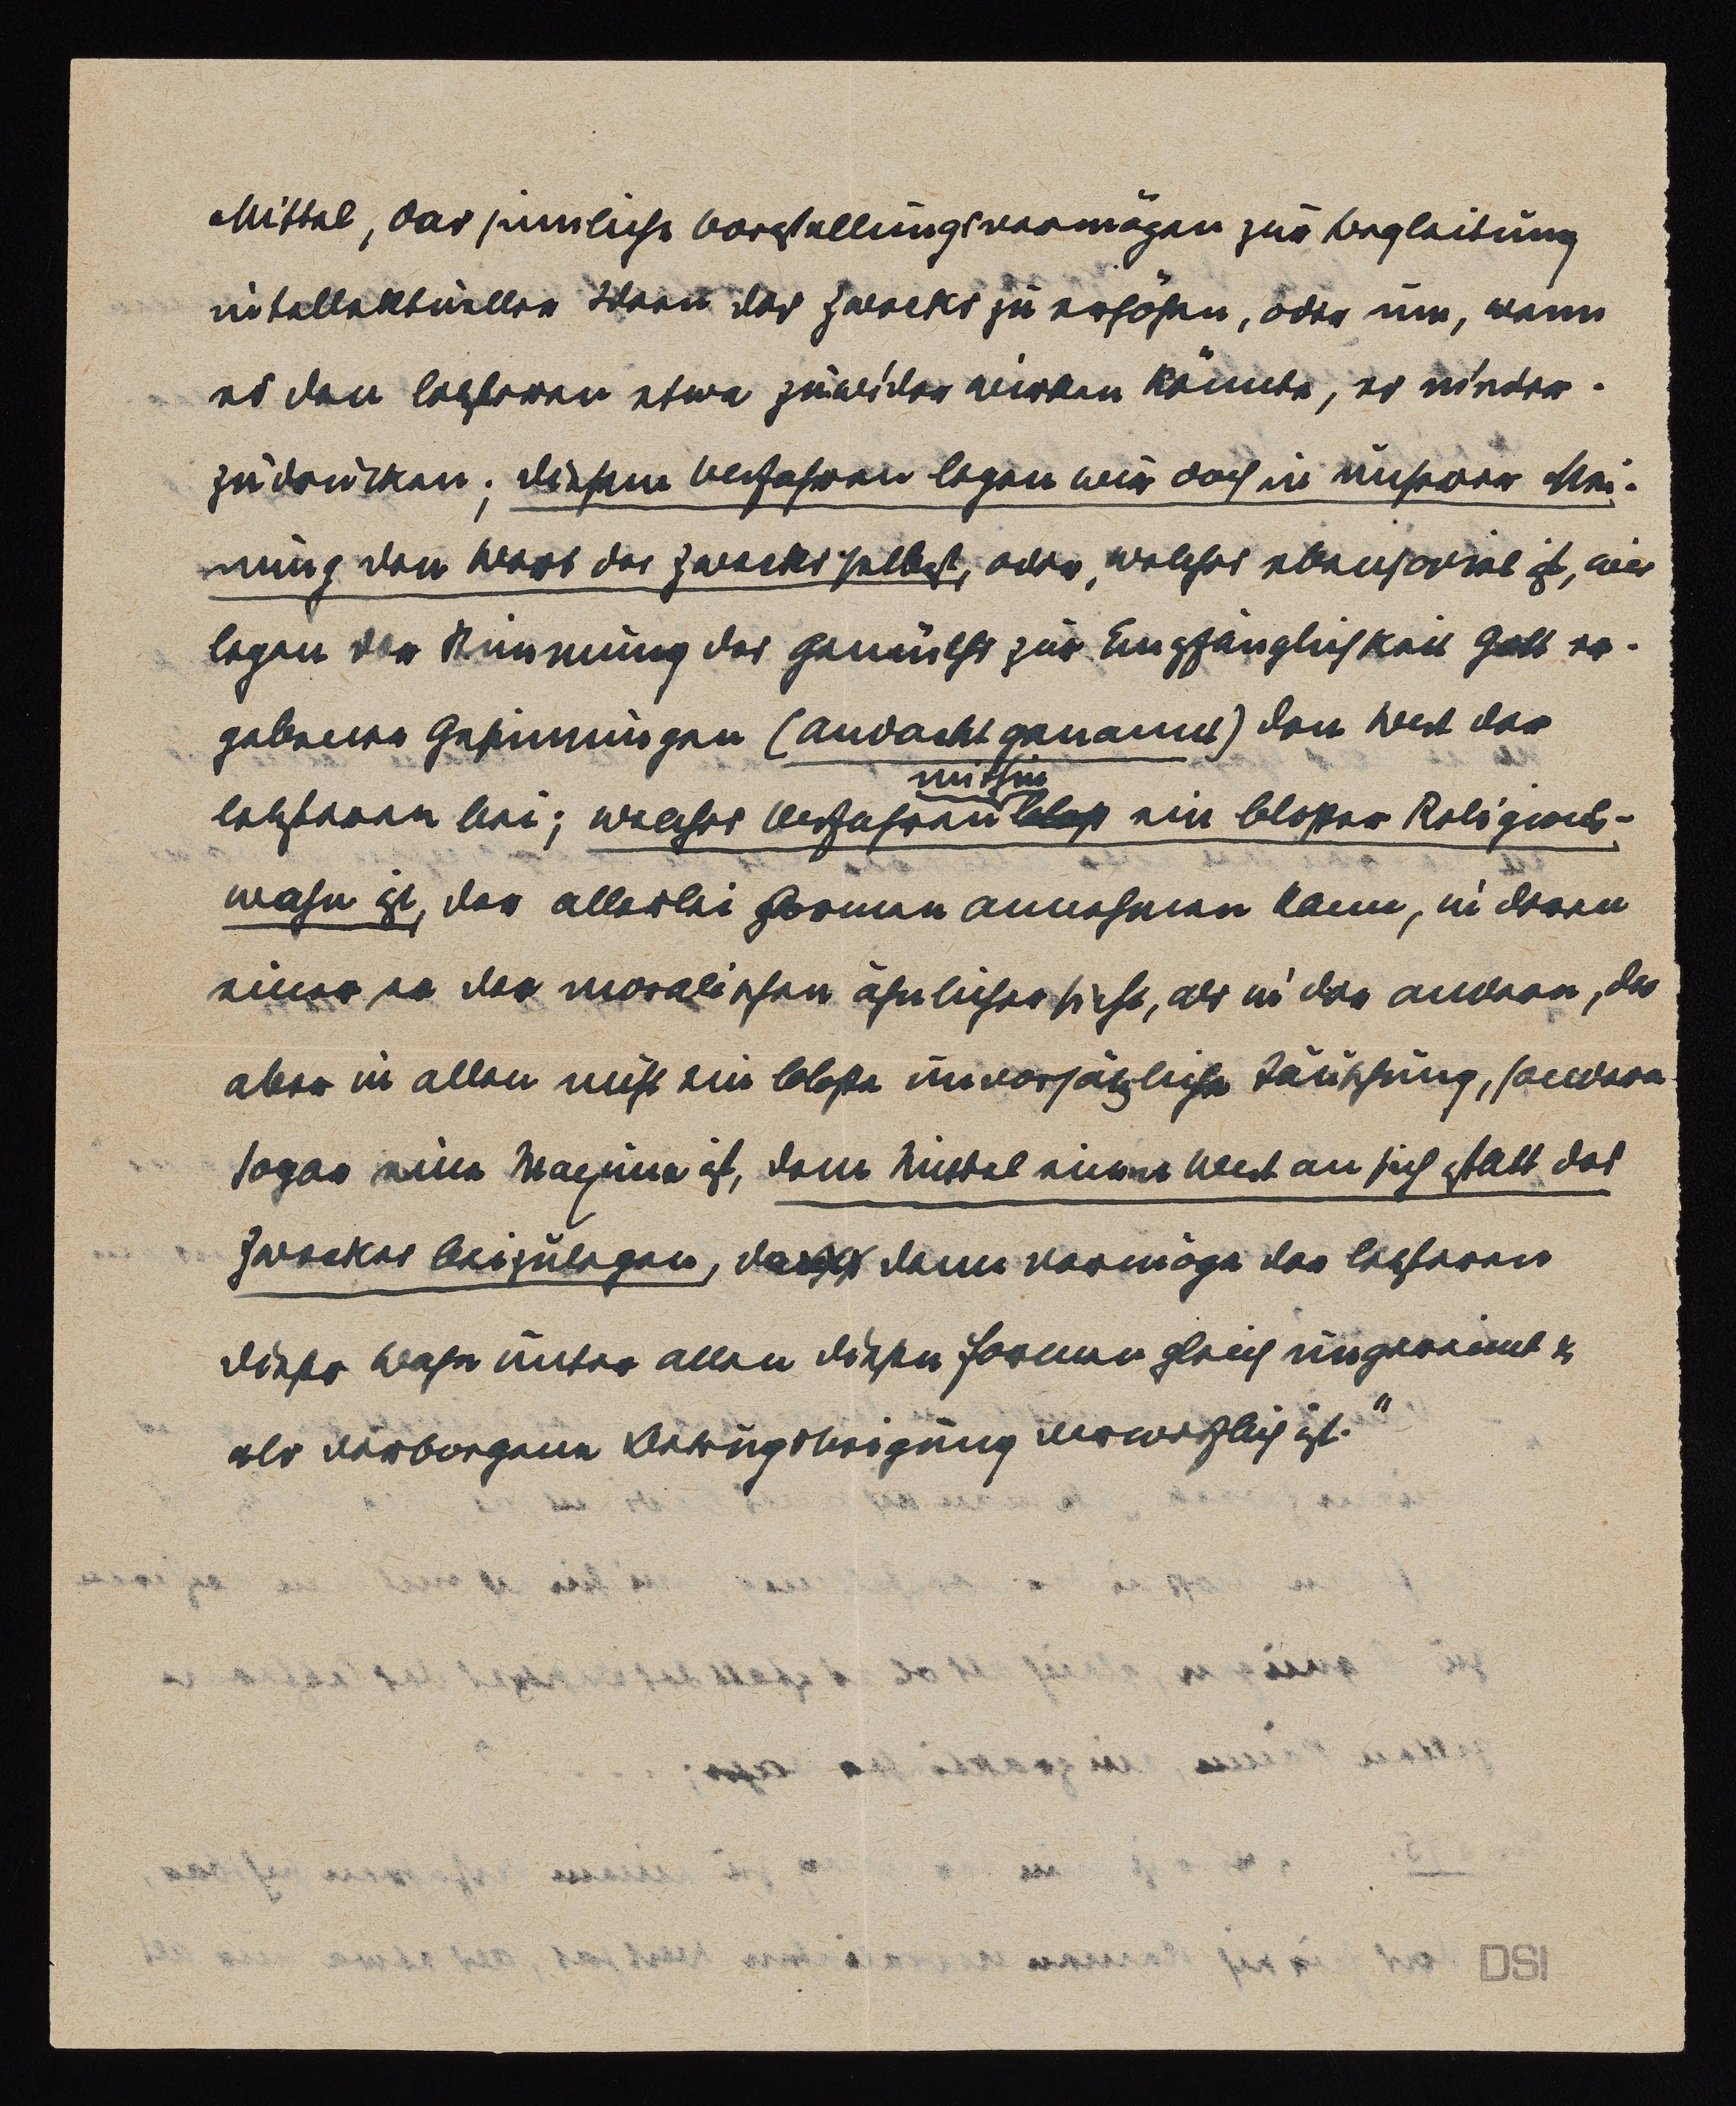 Mittel, das sinnliche Vorstellungsvermögen zur Begleitung
intellektueller Ideen des Zwecks zu erhöhen, oder um, wenn
es den letzteren etwa zuwider wirken könnte, es nieder-
zudrücken; diesem Verfahren legen wir doch in unserer Mei-
nung den Wert des Zwecks selbst, oder, welches ebensoviel ist, wir
legen der Stimmung des Gemüths zur Empfänglichkeit Gott er-
gebener Gesinnungen (Andacht genannt) den Wert der
mithin
letzteren bei; welches Verfahren bloß ein bloßer Religions-
wahn ist, der allerlei Formen annehmen kann, in deren
einer er der moralischen ähnlicher sieht, als in der andern, der
aber in allen nicht eine bloße unvorsätzliche Täuschung, sondern
sogar eine Maxime ist, dem Mittel einen Wert an sich statt des
Zweckes beizulegen, da denn vermöge der letzteren
dieser Wahn unter allen diesen Formen gleich ungereimt &
als verborgene Betrugsneigung verwerflich ist."
DSI